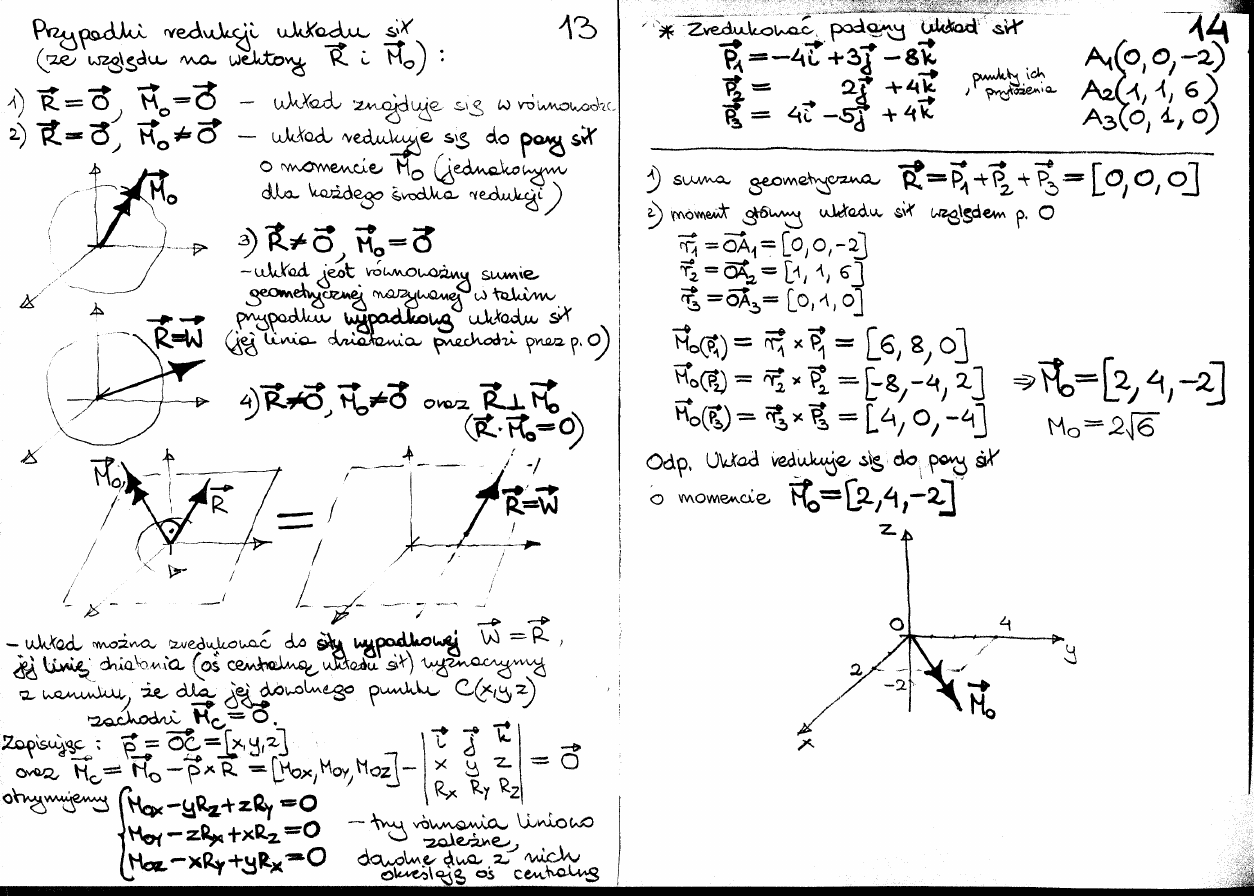 Przypadki redukcji układu sił 13
(ze względu na wektory R⃗ i M⃗o) :
1) R⃗ = O⃗, M⃗o = O⃗ – układ znajduje się w równowadze
2) R⃗ = O⃗, M⃗o ≠ O⃗ – układ redukuje się do pary sił
o momencie M⃗o (jednakowym
dla każdego środka redukcji)
M⃗o
3) R⃗ ≠ O⃗, M⃗o = O⃗
– układ jest równoważny sumie
geometrycznej nazywanej w takim
przypadku wypadkową układu sił
(jej linia działania przechodzi przez p. O)
R⃗=W⃗
4) R⃗≠O⃗, M⃗o≠O⃗ oraz R⃗ ⊥ M⃗o
(R⃗·M⃗o=0)
M⃗o R⃗ = R⃗=W⃗
– układ można zredukować do siły wypadkowej W⃗ = R⃗,
jej linię działania (oś centralną układu sił) wyznaczymy
z warunku, że dla jej dowolnego punktu C(x,y,z)
zachodzi M⃗c = O⃗.
Zapisując : p⃗ = OC⃗ = [x,y,z]
oraz M⃗c = M⃗o – p⃗×R⃗ = [Mox, Moy, Moz] – | i⃗ j⃗ k⃗ |
| x y z | = O⃗
| Rx Ry Rz |
otrzymujemy { Mox – yRz + zRy = 0
Moy – zRx + xRz = 0
Moz – xRy + yRx = 0
– trzy równania liniowo
zależne,
dowolne dwa z nich
określają oś centralną
14
* Zredukować podany układ sił
P⃗1 = –4i⃗ +3j⃗ –8k⃗ A1(0, 0, –2)
P⃗2 = 2j⃗ +4k⃗ , punkty ich przyłożenia A2(1, 1, 6)
P⃗3 = 4i⃗ –5j⃗ +4k⃗ A3(0, 1, 0)
1) suma geometryczna R⃗ = P⃗1+P⃗2+P⃗3 = [0, 0, 0]
2) moment główny układu sił względem p. O
r⃗1 = OA⃗1 = [0, 0, –2]
r⃗2 = OA⃗2 = [1, 1, 6]
r⃗3 = OA⃗3 = [0, 1, 0]
M⃗o(P⃗1) = r⃗1 × P⃗1 = [6, 8, 0]
M⃗o(P⃗2) = r⃗2 × P⃗2 = [–8, –4, 2] ⇒ M⃗o = [2, 4, –2]
M⃗o(P⃗3) = r⃗3 × P⃗3 = [4, 0, –4] Mo = 2√6
Odp. Układ redukuje się do pary sił
o momencie M⃗o = [2, 4, –2]
z
O 4
y
2
–2
M⃗o
x